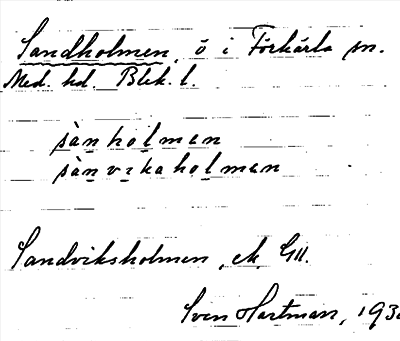 Sandholmen, ö i Förkärla sn.
Med. hd. Blek. l.
sànholmen
sànvikaholmen
Sandviksholmen, ek. GII.
Sven Hartman, 193